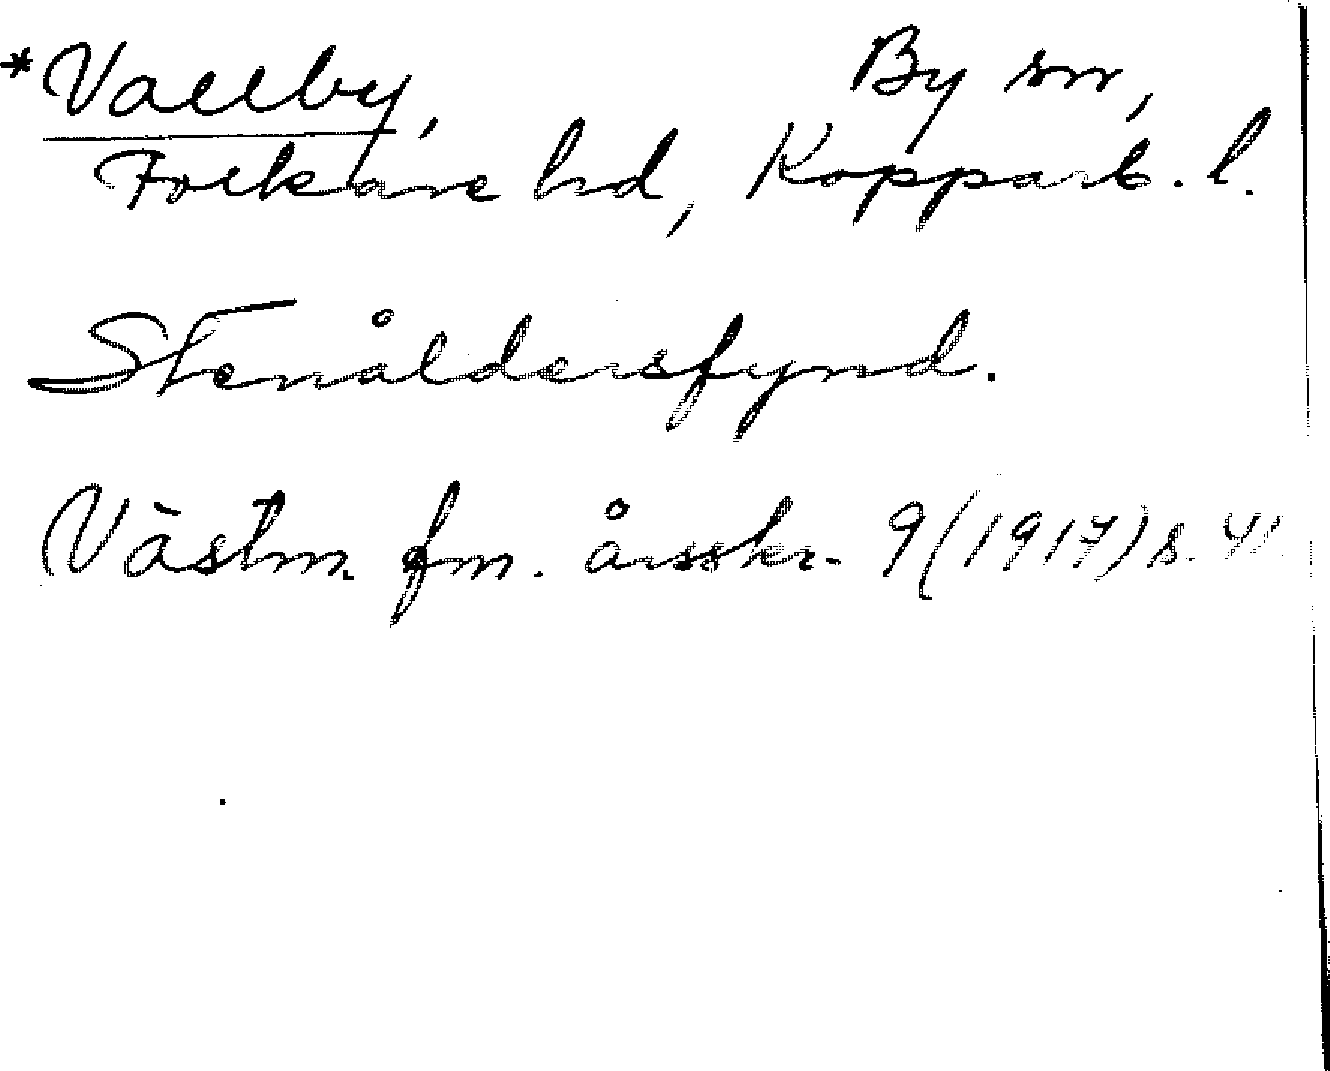 *Vallby, By sn,
Folkare hd, Kopparb. l.
Stenåldersfynd.
Västm. fm. årsskr. 9 (1917) s. 41.